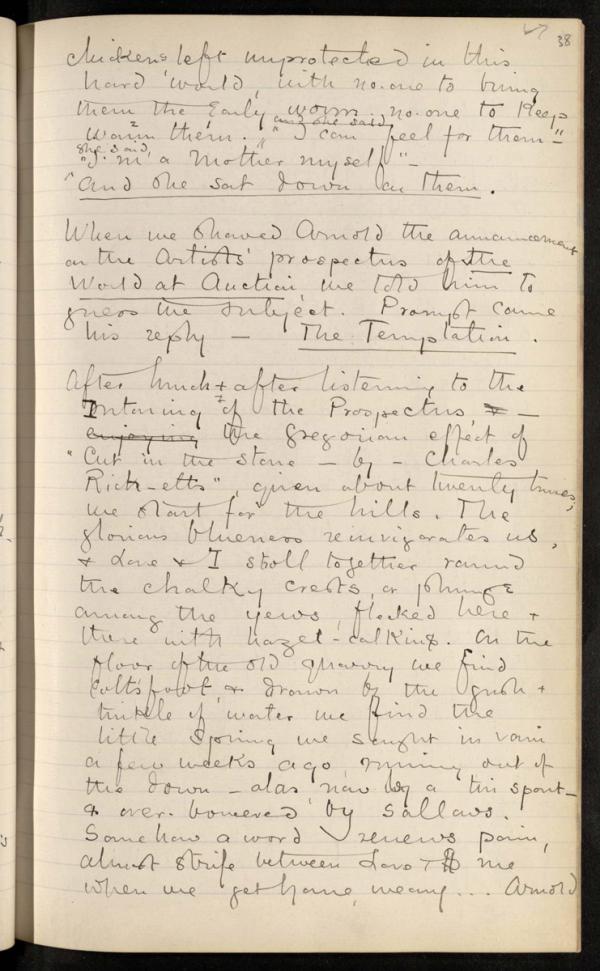 38
chickens left unprotected in this
hard world, with no.one to bring
them the Early worm. no.one to keep
and one said
warm them. "I can feel for them"-
she said,
"I'm a Mother myself" -
and she sat down on them.
When we showed Arnold the announcement
on the Artists' prospectus of the
World at Auction, we told him to
guess the subject. Prompt came
his reply — The Temptation.
After lunch & after listening to the
Intoning of the Prospectus, —
enjoying the Gregorian effect of
"Cut in the stone — by — Charles
Rick-etts", given about twenty times,
we start for the hills. The
glorious blueness reinvigorates us,
& Love & I stroll together round
the chalky crests, or plunge
among the yews, flocked here &
there with hazel-catkins. On the
floor of the old quarry we find
Coltsfoot, & drawn by the gush &
tinkle of water we find the
little Spring we sought in vain
a few weeks ago, running out of
the down — alas, now by a tin spout —
& over-bowered by sallows.
Somehow a word renews pain,
almost strife between Love & me
when we get home, weary... Arnold